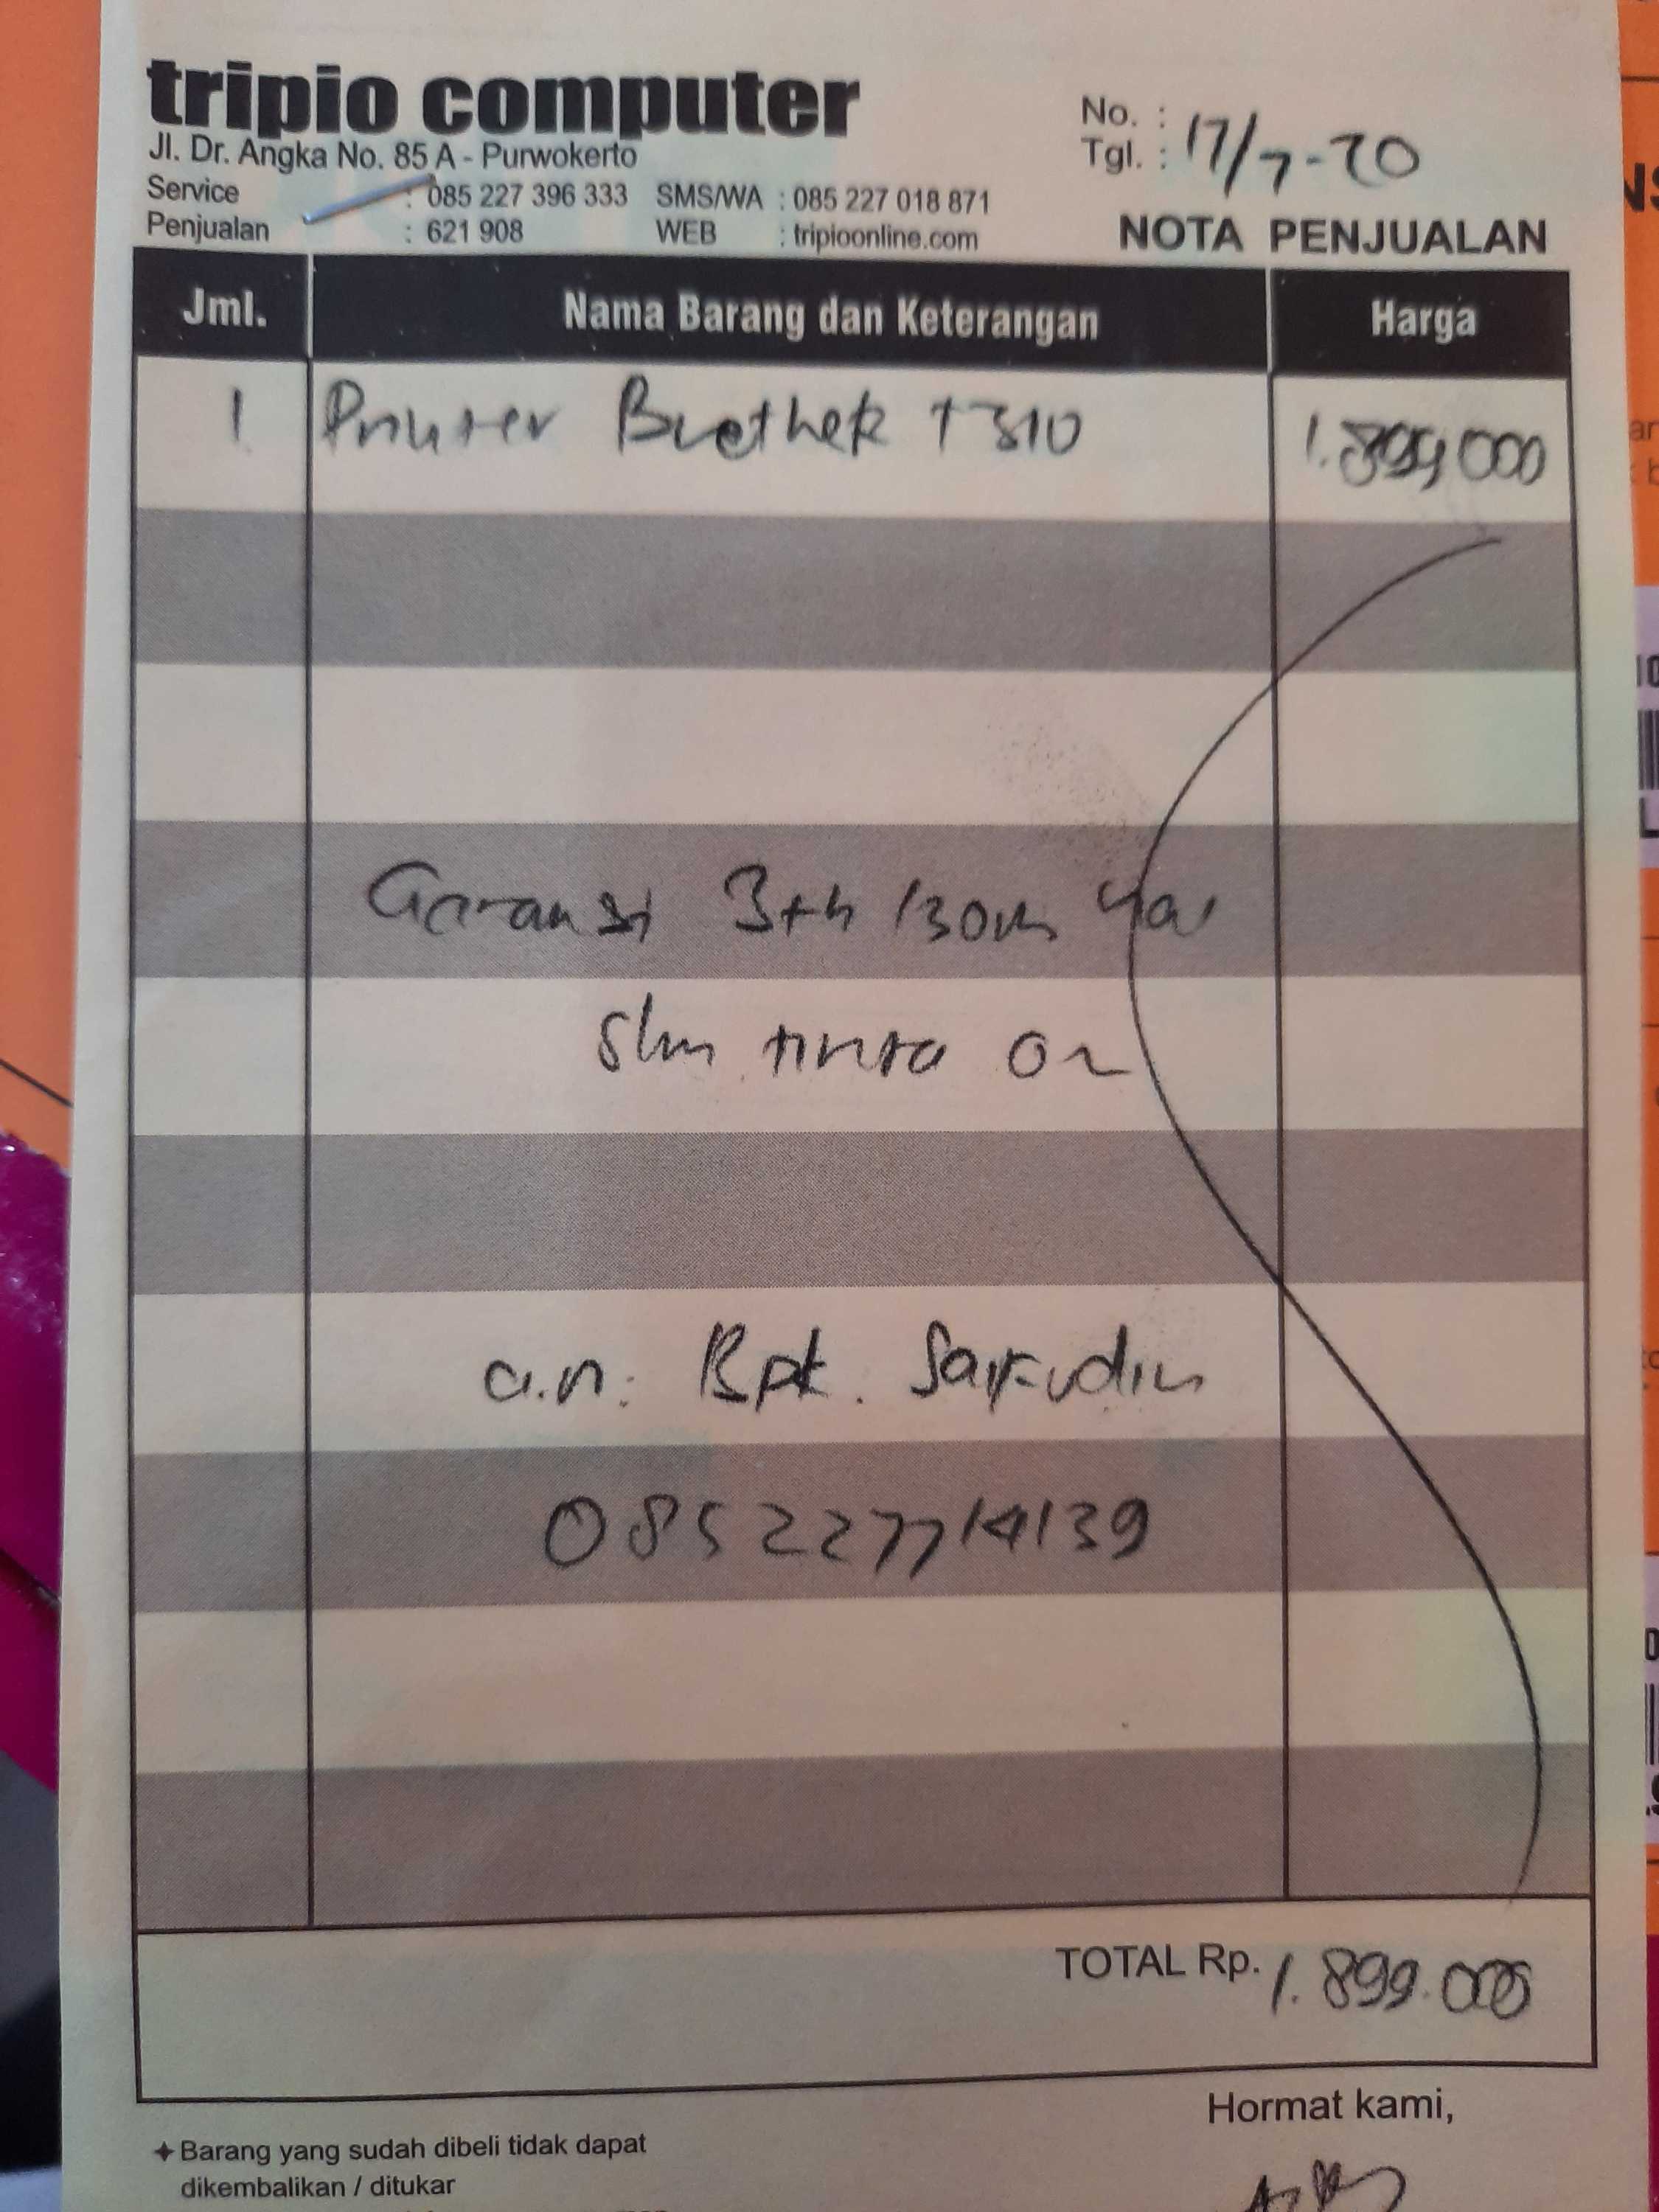 tripio computer
Jl. Dr. Angka No. 85 A - Purwokerto
Service : 085 227 396 333 SMS/WA : 085 227 018 871
Penjualan : 621 908 WEB : tripioonline.com
No. :
Tgl. : 17/7-20
NOTA PENJUALAN
Jml. Nama Barang dan Keterangan Harga
1 Printer Brother T310 1.899.000
Garansi 3th /30rb
tinta
a.n. Bpk. Sayfudin
085227714139
TOTAL Rp. 1.899.000
Hormat kami,
Barang yang sudah dibeli tidak dapat
dikembalikan / ditukar